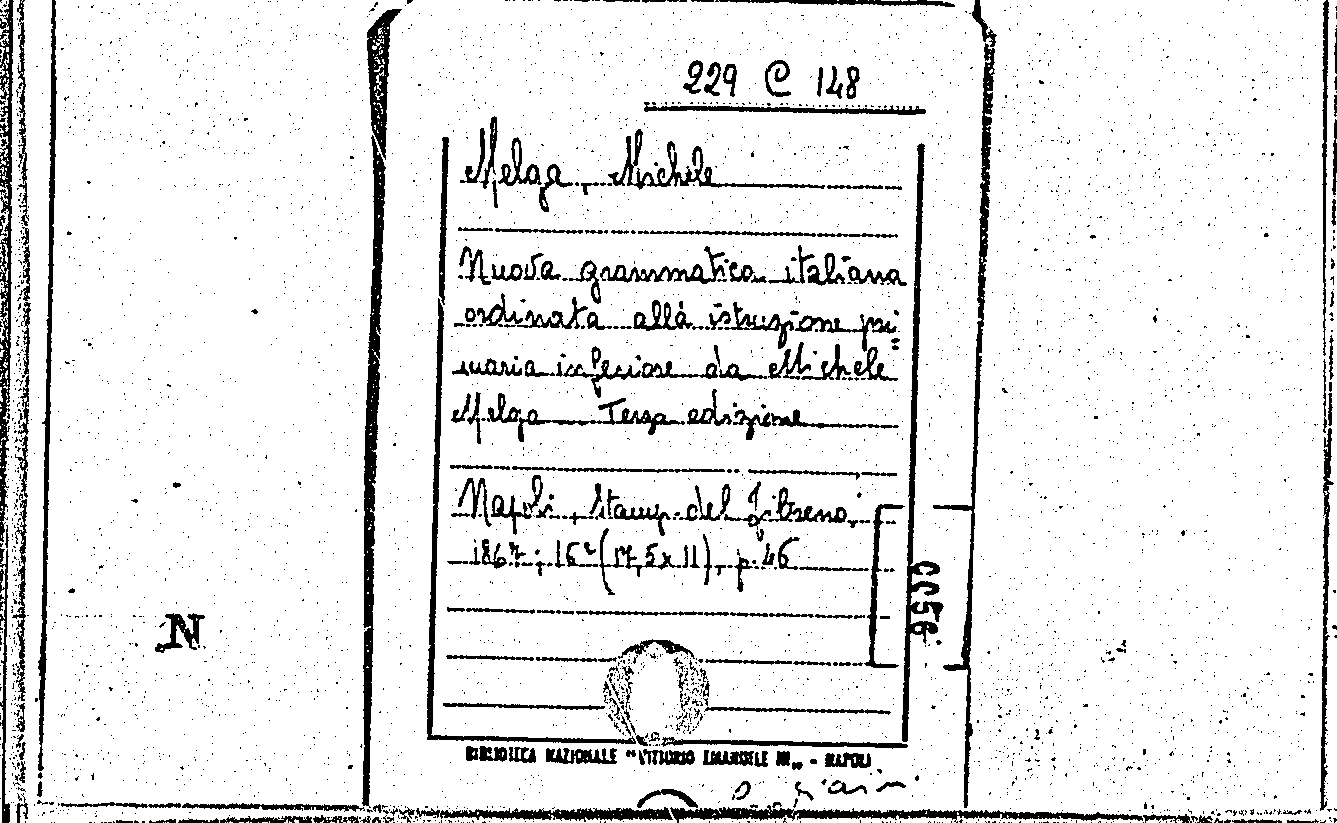 229 C 148
Melga, Michele
Nuova grammatica italiana
ordinata alla istruzione pri=
maria inferiore da Michele
Melga Terza edizione
Napoli, Stamp. del Fibreno,
1867; 16° (17,5x11), p. 46
N
BIBLIOTECA NAZIONALE "VITTORIO EMANUELE III„ - NAPOLI